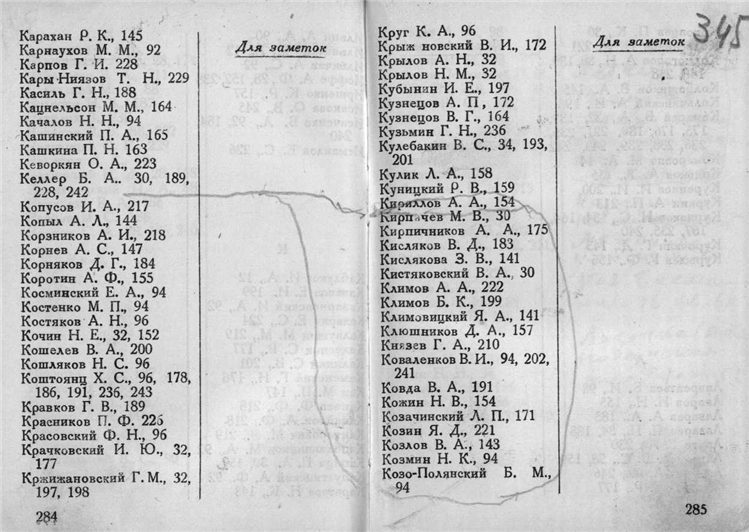 Карахан Р. К., 145
Карнаухов М. М., 92
Карпов Г. И. 228
Кары-Ниязов Т. Н., 229
Касиль Г. Н., 188
Кацнельсон М. М., 164
Качалов Н. Н., 94
Кашинский П. А., 165
Кашкина П. Н. 163
Кеворкян О. А., 223
Келлер Б. А.. 30, 189,
228, 242
Копусов И. А., 217
Копыл А. Л., 144
Корзников А. И., 218
Корнев А. С., 147
Корняков Д. Г., 184
Коротин А. Ф., 155
Косминский Е. А., 94
Костенко М. П., 94
Костяков А. Н., 96
Кочин Н. Е., 32, 152
Кошелев В. А., 200
Кошляков Н. С. 96
Коштоянц Х. С., 96, 178,
186, 191, 236, 243
Кравков Г. В., 189
Красников П. Ф. 226
Красовский Ф. Н., 96
Крачковский И. Ю., 32,
177
Кржижановский Г. М., 32,
197, 198
284
Для заметок
Круг К. А., 96
Крыж новский В. И., 172
Крылов А. Н., 32
Крылов Н. М., 32
Кубынин И. Е., 197
Кузнецов А. П , 172
Кузнецов В. Г., 164
Кузьмин Г. Н., 236
Кулебакин В. С., 34, 193,
201
Кулик Л. А., 158
Куницкий Р. В., 159
Кириллов А. А., 154
Кирпичев М. В., 30
Кирпичников А. А., 175
Кисляков В. Д., 183
Кислякова З. В., 141
Кистяковский В. А., 30
Климов А. А., 222
Климов Б. К., 199
Климовицкий Я. А., 141
Клюшников Д. А., 157
Князев Г. А., 210
Коваленков В. И., 94, 202,
241
Ковда В. А., 191
Кожин Н. В., 154
Козачинский Л. П., 171
Козин Я. Д., 221
Козлов В. А., 143
Козмин Н. К., 94
Козо-Полянский Б. М.,
94
Для заметок
345
285